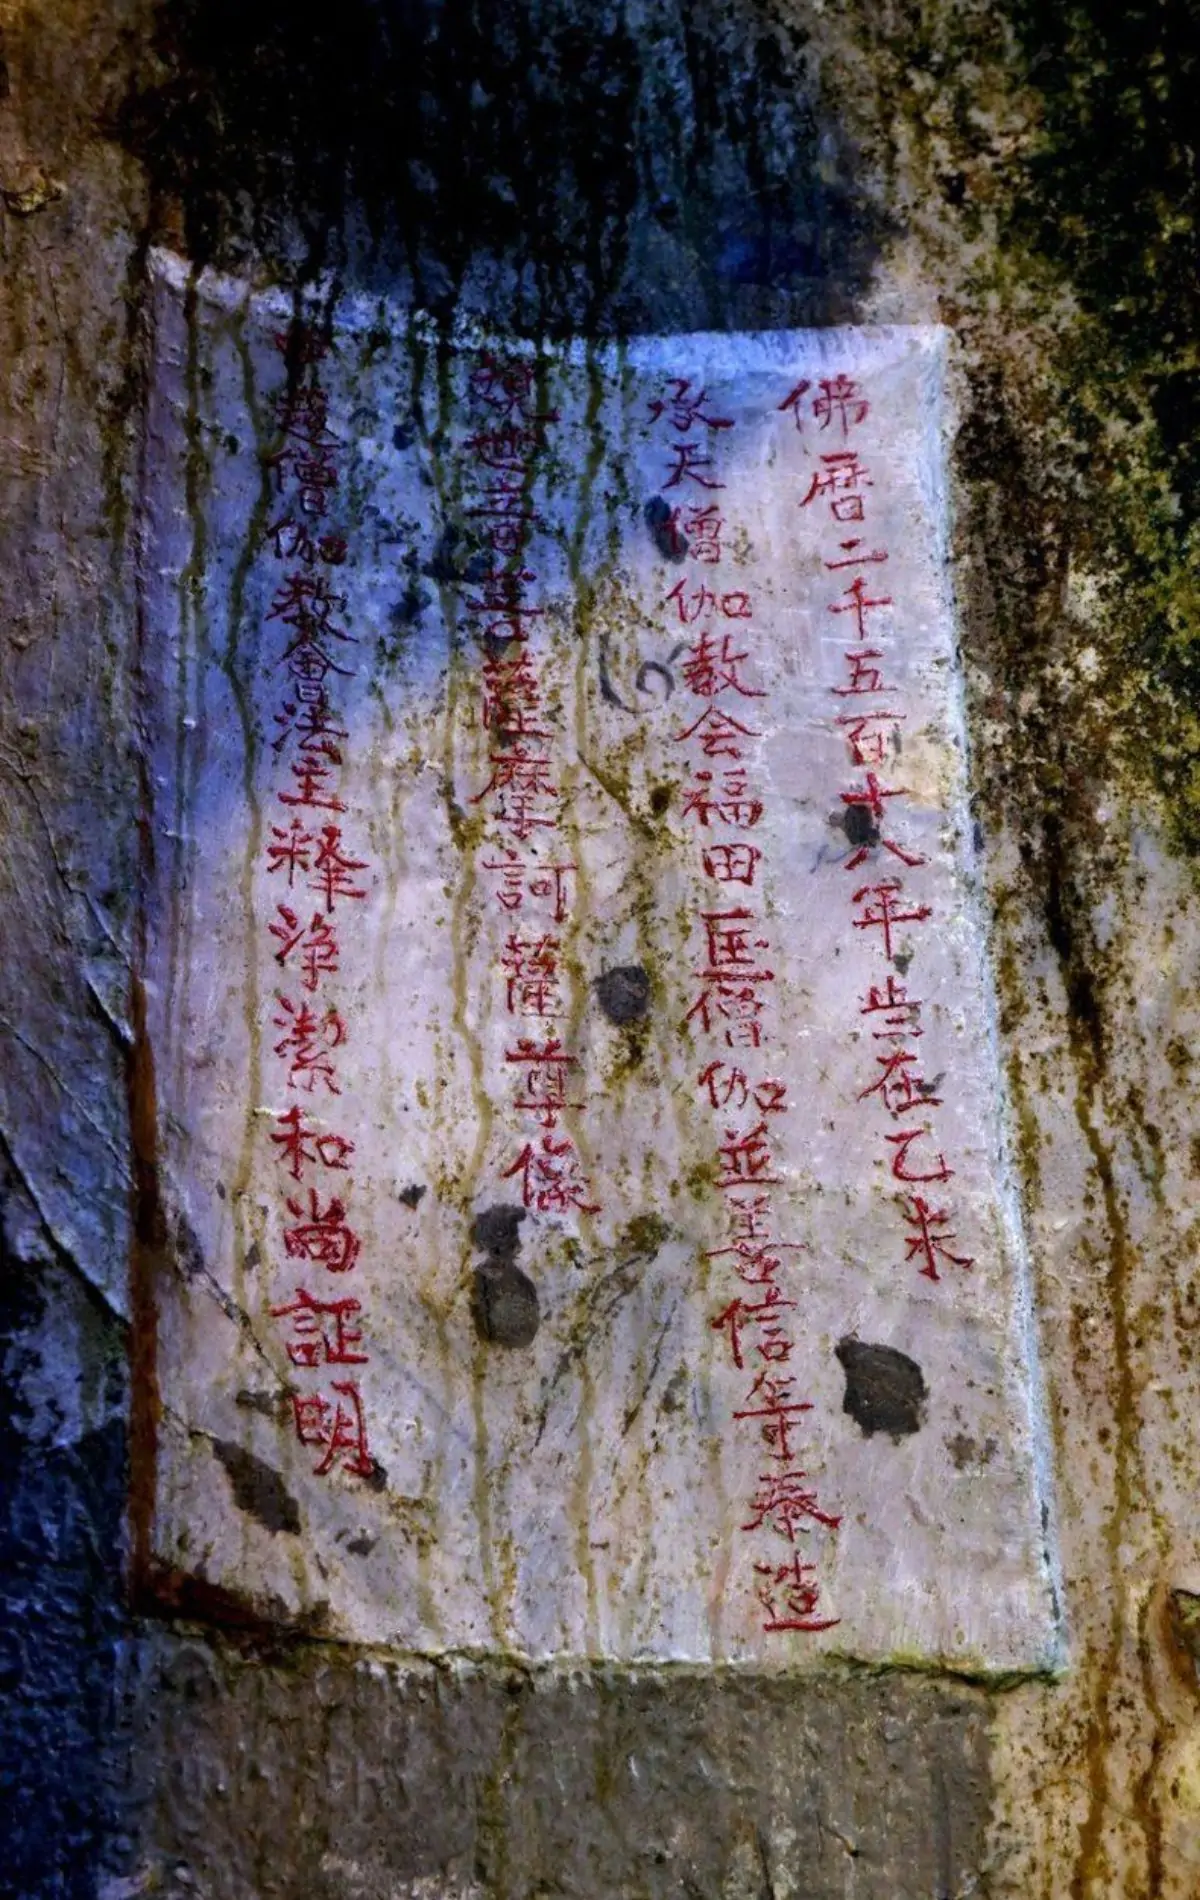 佛暦二千五百十八年在乙未
承天僧伽教会福田僧伽並善信等奉造
観世音菩薩摩訶薩尊像
中越僧伽教會法主释浄潔和尚証明